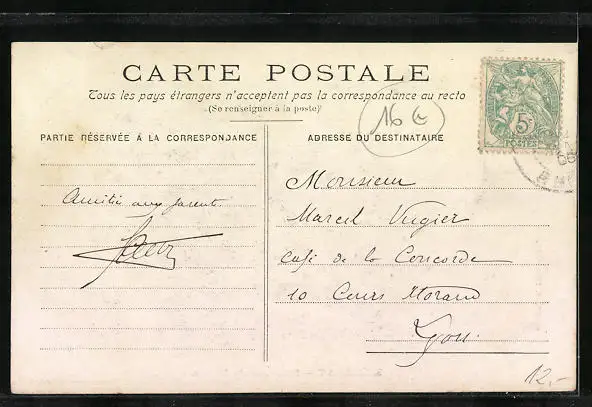 CARTE POSTALE
Tous les pays étrangers n'acceptent pas la correspondance au recto
(Se renseigner à la poste)
16 €
5c
POSTES
PARTIE RÉSERVÉE À LA CORRESPONDANCE
ADRESSE DU DESTINATAIRE
Amitié aux parents
Monsieur
Marcel Vugier
Café de la Concorde
10 Cours Morand
Lyon.
12.-